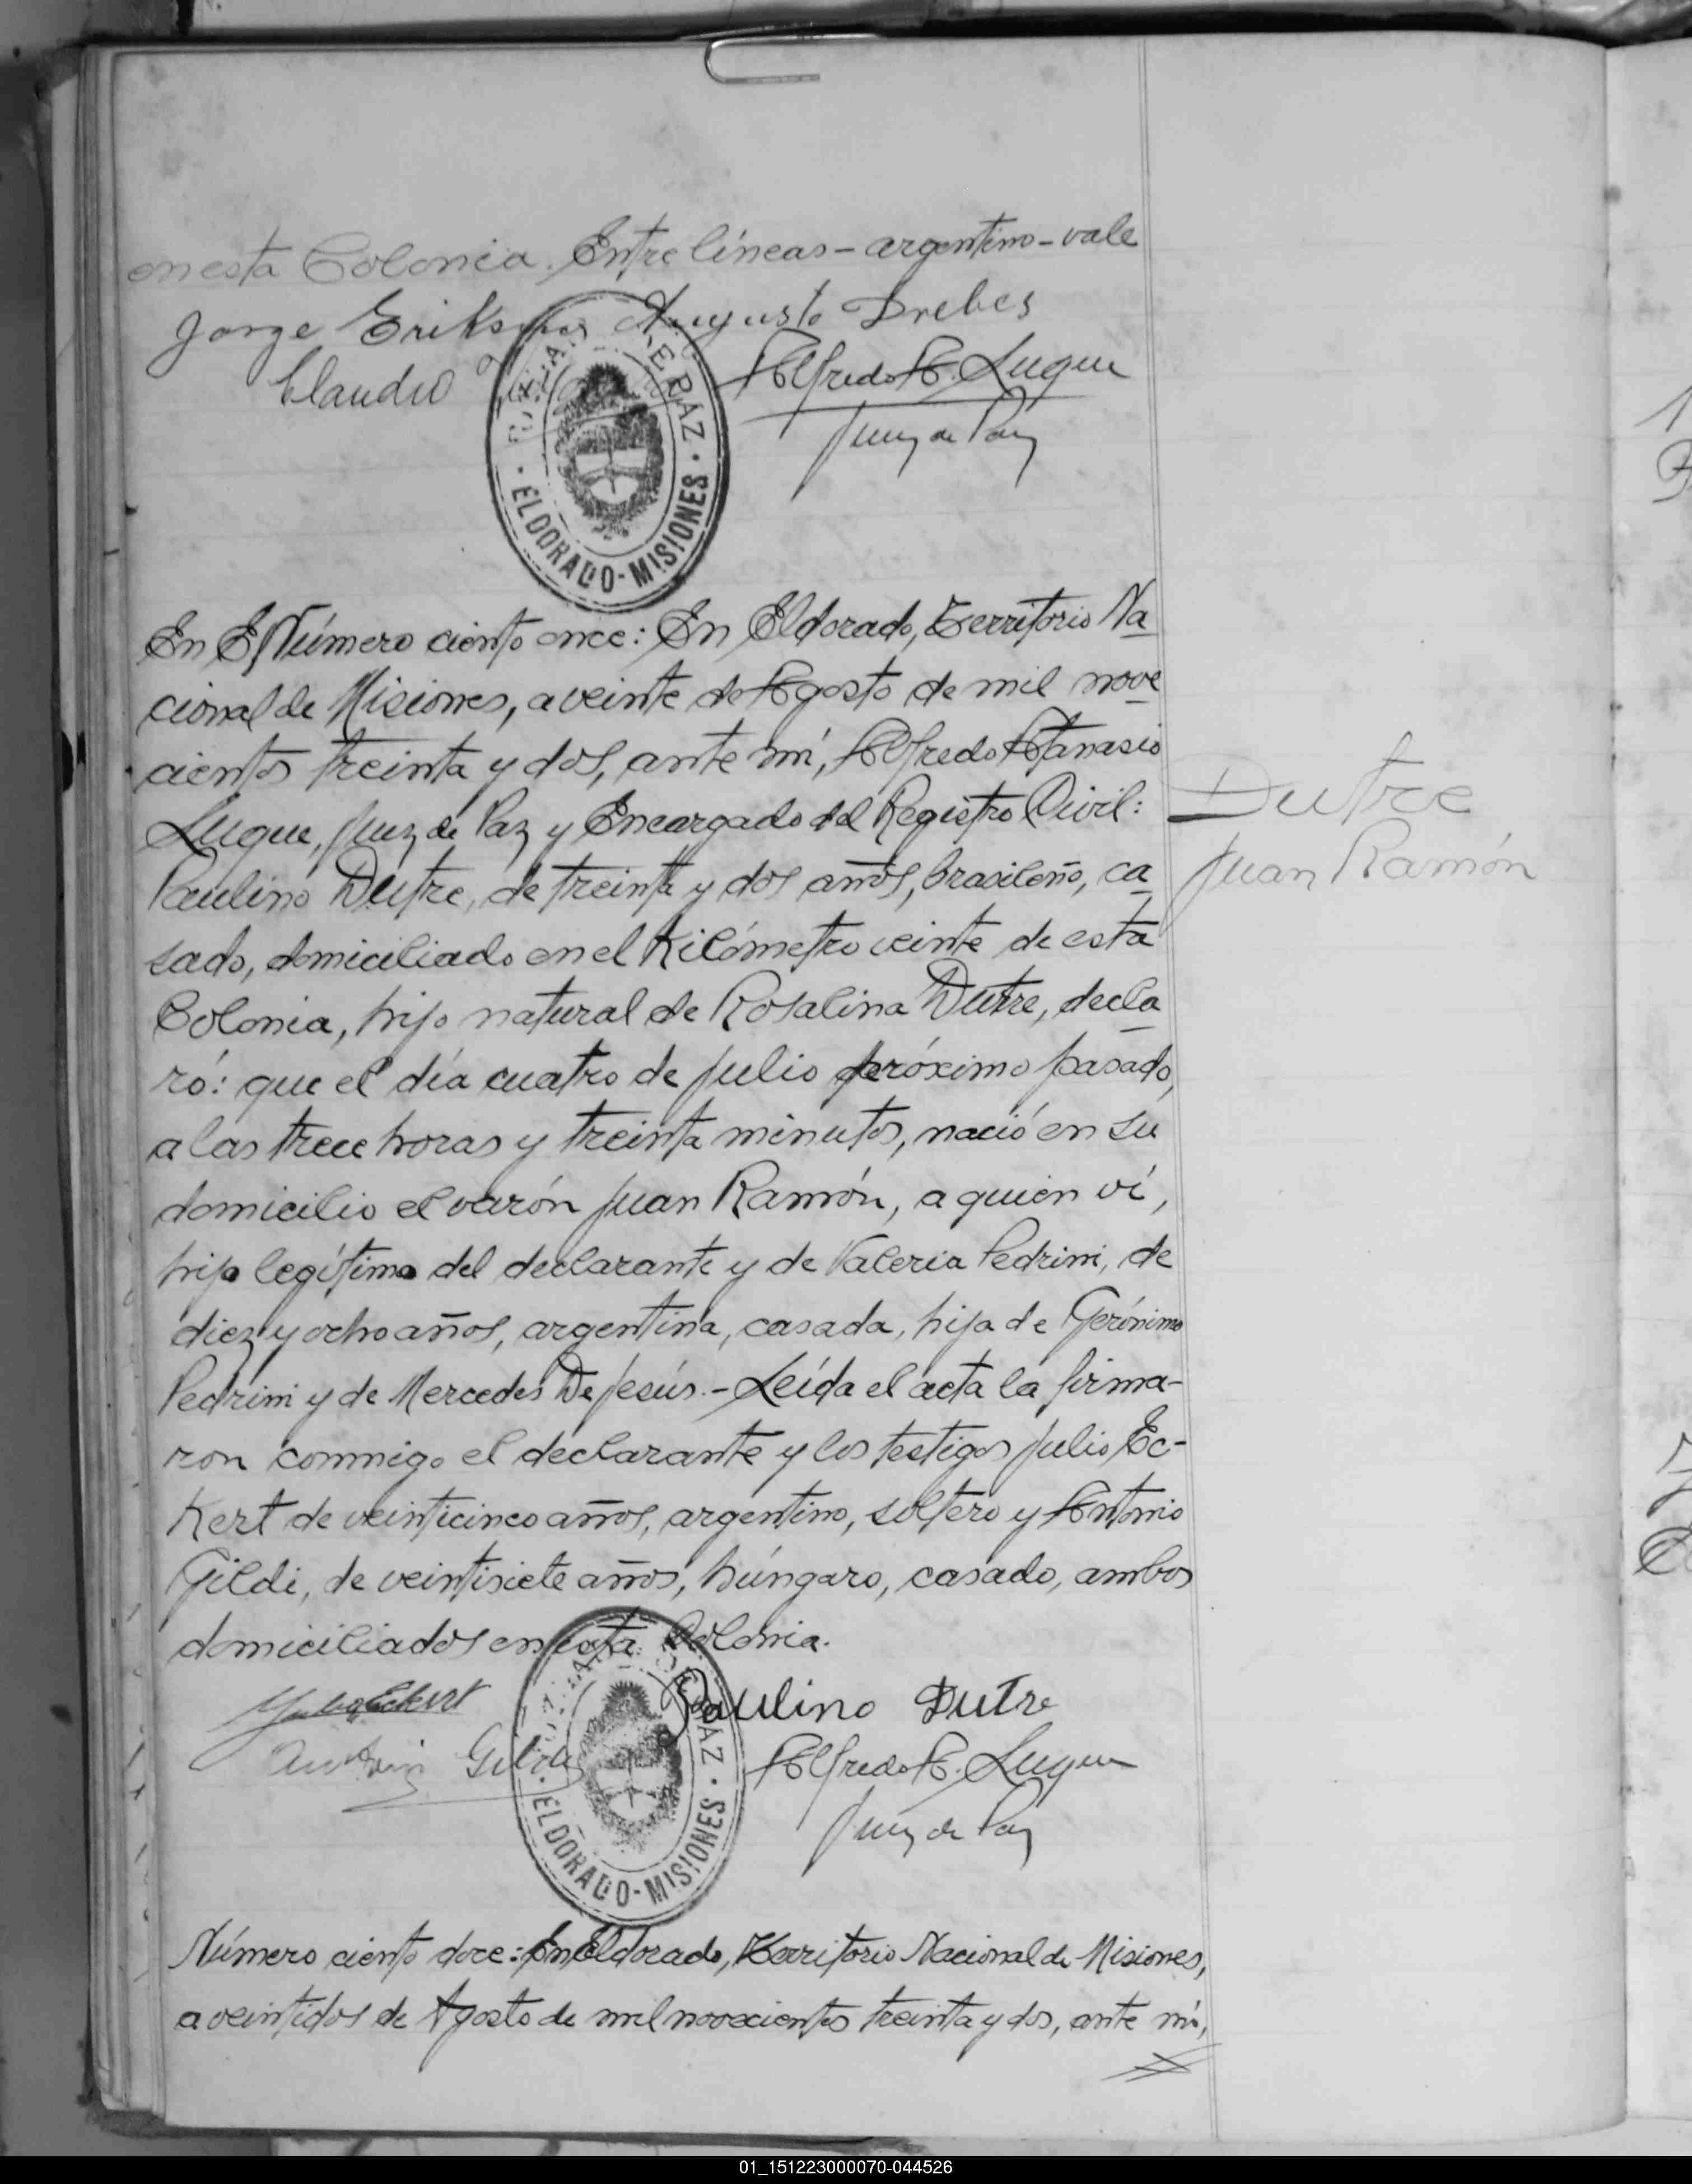 en esta Colonia. Entre líneas - argentino - vale
Jorge Eriks Augusto Drebes
Claudio Alfredo A. Luque
Juez de Paz
JUZGADO DE PAZ
· ELDORADO - MISIONES ·
En E Número ciento once: En Eldorado, Territorio Na
cional de Misiones, a veinte de Agosto de mil nove
cientos treinta y dos, ante mí, Alfredo Atanasio
Luque, Juez de Paz y Encargado del Registro Civil:
Paulino Dutre, de treinta y dos años, brasileño, ca
sado, domiciliado en el Kilómetro veinte de esta
Colonia, hijo natural de Rosalina Dutre, decla
ró: que el día cuatro de Julio próximo pasado,
a las trece horas y treinta minutos, nació en su
domicilio el varón Juan Ramón, a quien ví,
hijo legítimo del declarante y de Valeria Pedrini, de
diez y ocho años, argentina, casada, hija de Gerónimo
Pedrini y de Mercedes De Jesús.- Leída el acta la firma-
ron conmigo el declarante y los testigos Julio Ec-
kert de veinticinco años, argentino, soltero y Antonio
Gildi, de veintisiete años, húngaro, casado, ambos
domiciliados en esta Colonia.
Dutre
Juan Ramón
Julio Eckert Paulino Dutre
Gildi Alfredo A. Luque
Juez de Paz
JUZGADO DE PAZ
· ELDORADO - MISIONES ·
Número ciento doce: En Eldorado, Territorio Nacional de Misiones,
a veintidos de Agosto de mil novecientos treinta y dos, ante mí,
01_151223000070-044526